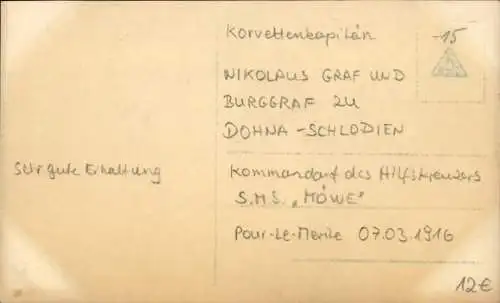 Korvettenkapitän
-15
NIKOLAUS GRAF UND
BURGGRAF ZU
DOHNA-SCHLODIEN
Sehr gute Erhaltung
Kommandant des Hilfskreuzers
S.M.S. „MÖWE"
Pour-Le-Merite 07.03.1916
12€